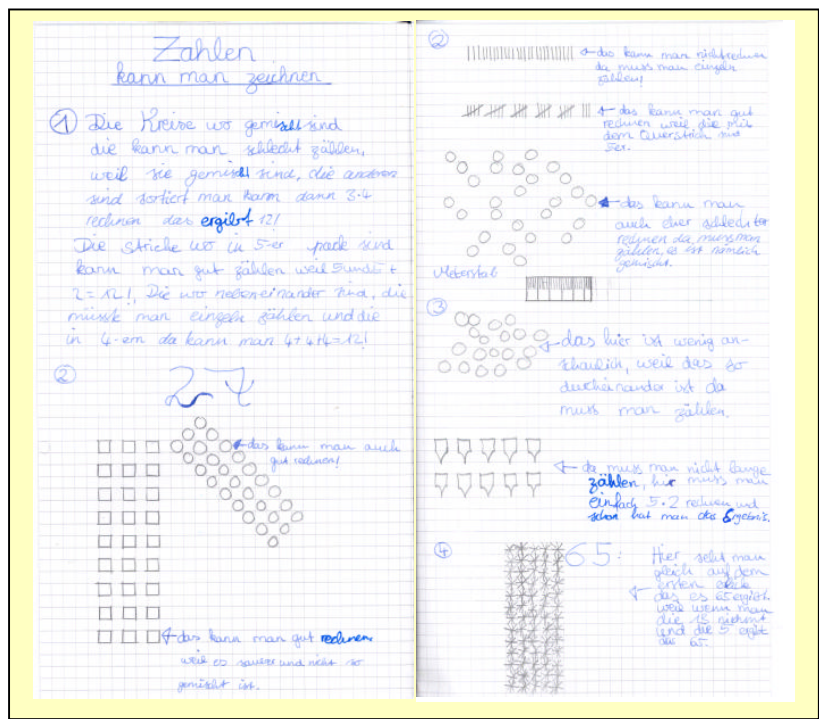 Zahlen
kann man zeichnen
① Die Kreise wo gemischt sind
die kann man schlecht zählen,
weil sie gemischt sind, die anderen
sind sortiert man kann dann 3·4
rechnen das ergibt 12!
Die striche wo in 5-er pack sind
kann man gut zählen weil 5und5 +
2 = 12!, Die wo nebeneinander sind, die
müsste man einzeln zählen und die
in 4-ern da kann man 4+4+4=12!
②
27
das kann man auch
gut rechnen!
das kann man gut rechnen
weil es sauber und nicht so
gemischt ist.
②
das kann man nicht rechnen
da muss man einzeln
zählen!
das kann man gut
rechnen weil die mit
dem Querstrich sind
5er.
das kann man
auch eher schlechter
rechnen da muss man
zählen, es ist nämlich
gemischt.
Meterstab
③
das hier ist wenig an-
schaulich, weil das so
durcheinander ist da
muss man zählen.
da muss man nicht lange
zählen, hir muss man
einfach 5·2 rechnen und
schon hat man das Ergebnis.
④
65: Hier seht man
gleich auf dem
ersten
das es 65 ergibt
weil wenn man
die 13 nimmt
und die 5 ergibt
das 65.